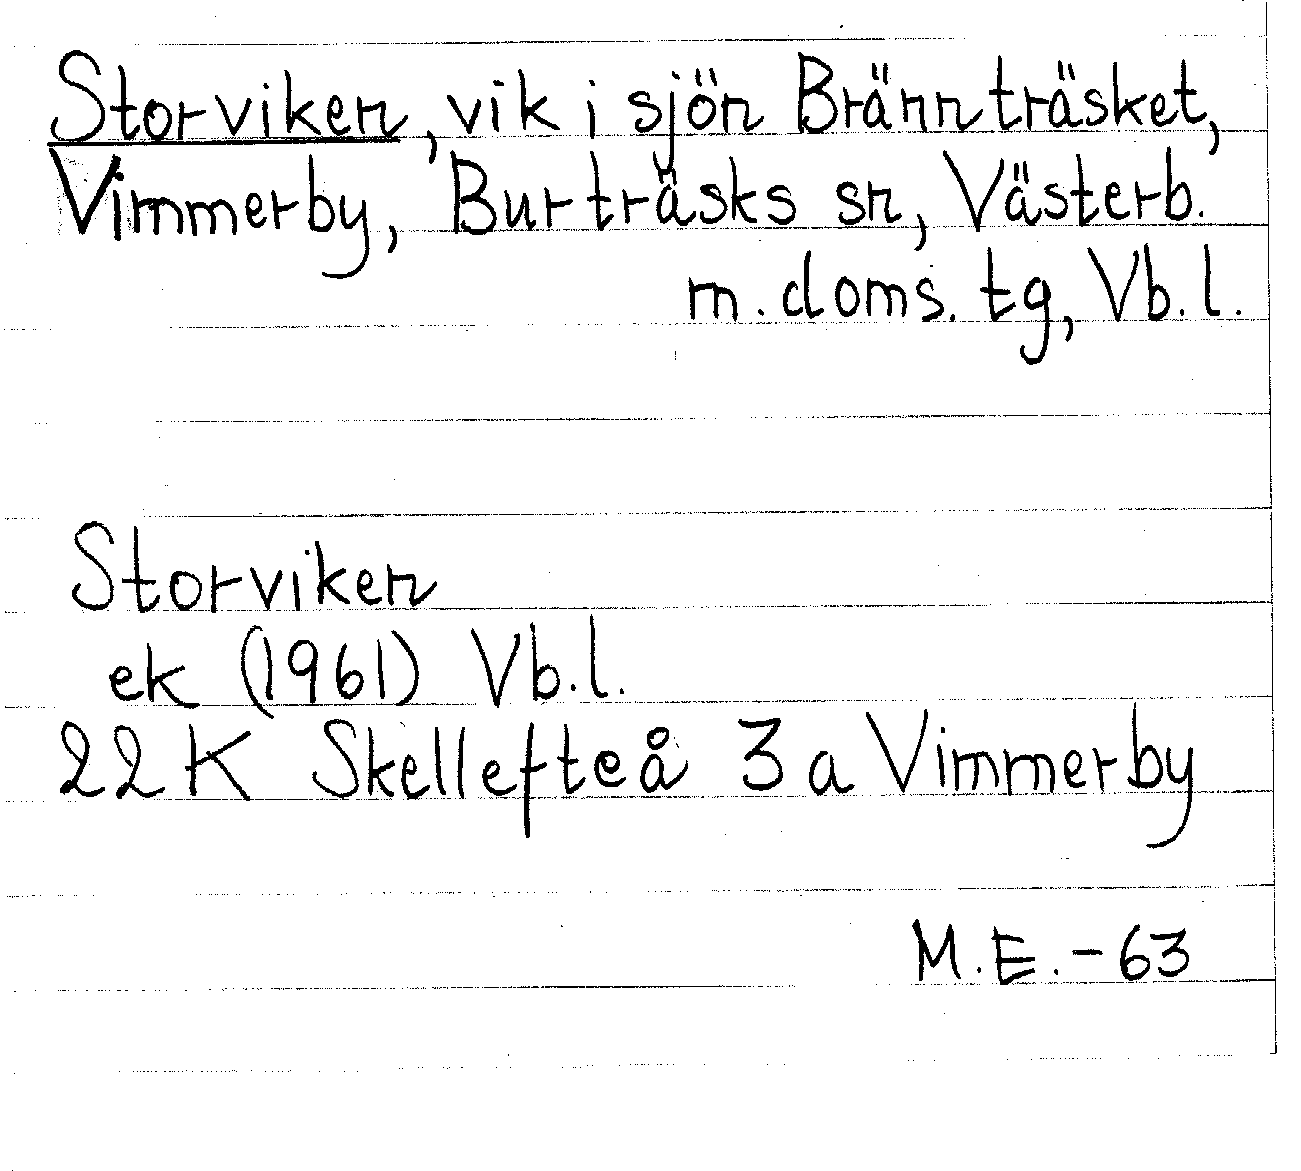 Storviken, vik i sjön Brännträsket,
Vimmerby, Burträsks sn, Västerb.
m. doms. tg, Vb. l.
Storviken
ek (1961) Vb. l.
22 K Skellefteå 3 a Vimmerby
M.E. -63